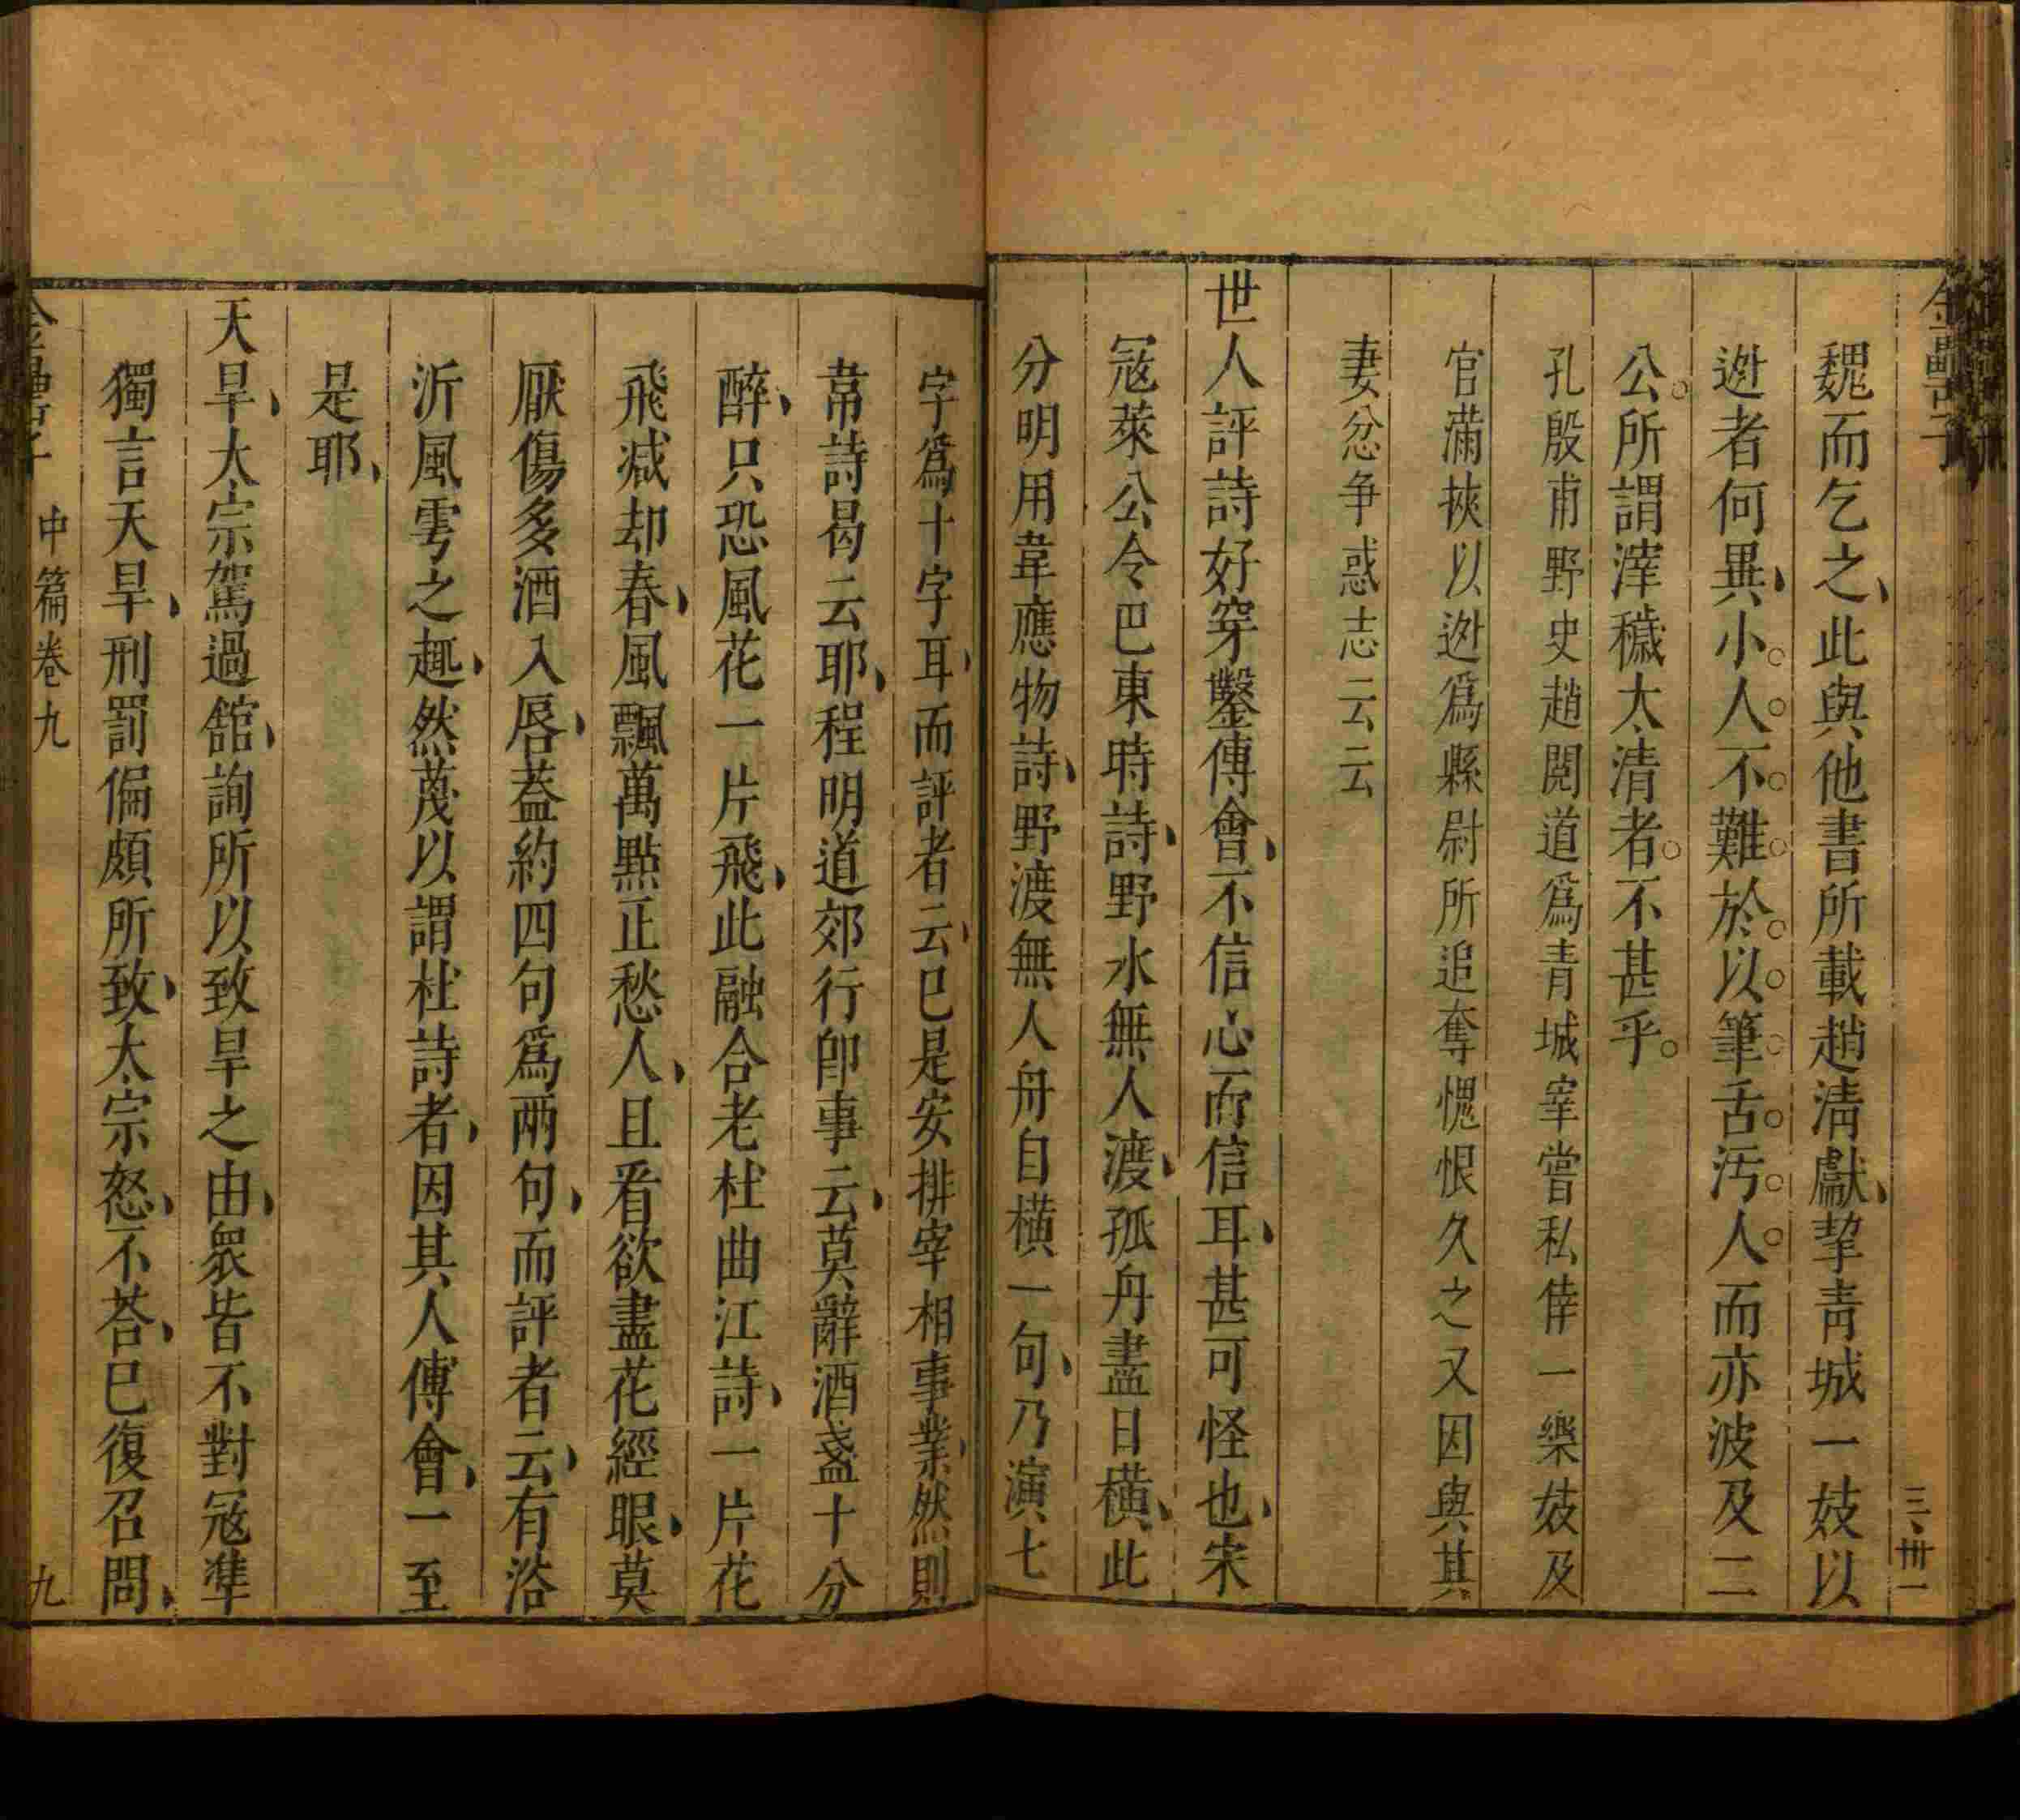 金罍子
三 卅一
魏而乞之此與他書所載趙清獻挈青城一妓以
迯者何異小人不難於以筆舌汚人而亦波及二
公所謂滓穢太清者不甚乎
孔殷甫野史趙閱道爲青城宰嘗私倖一樂妓及
官滿挾以迯爲縣尉所追奪愧恨久之又因與其
妻忿争惑志云云
世人評詩好穿鑿傳會不信心而信耳甚可怪也宋
冦萊公令巴東時詩野水無人渡孤舟盡日橫此
分明用韋應物詩野渡無人舟自橫一句乃演七
字爲十字耳而評者云已是安排宰相事業然則
韋詩曷云耶程明道郊行卽事云莫辭酒盞十分
醉只恐風花一片飛此融合老杜曲江詩一片花
飛减却春風飄萬點正愁人且看欲盡花經眼莫
厭傷多酒入唇葢約四句爲兩句而評者云有浴
沂風雩之趣然蔑以謂杜詩者因其人傅會一至
是耶
天旱太宗駕過舘詢所以致旱之由衆皆不對冦準
獨言天旱刑罰偏頗所致太宗怒不荅已復召問
金罍子
中篇卷九
九